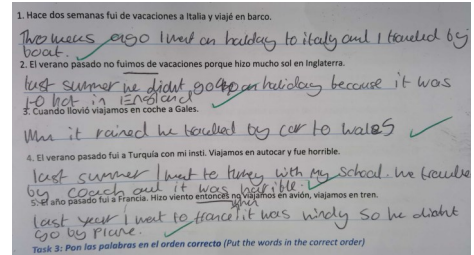 1. Hace dos semanas fui de vacaciones a Italia y viajé en barco.
Two weeks ago I went on haliday to italy and I traveled by
boat.
2. El verano pasado no fuimos de vacaciones porque hizo mucho sol en Inglaterra.
last summer we didnt go to on haliday because it was
to hot in England
3. Cuando llovió viajamos en coche a Gales.
When it rained we traveled by car to wales
4. El verano pasado fui a Turquía con mi insti. Viajamos en autocar y fue horrible.
last summer I went to turkey with my school. we travelled
by coach and it was horible.
5. El año pasado fui a Francia. Hizo viento entonces no viajamos en avión, viajamos en tren.
last year I went to france it was windy so we didnt
go by plane.
Task 3: Pon las palabras en el orden correcto (Put the words in the correct order)